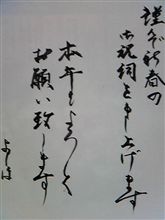 謹んで新春の
御祝詞を申し上げます
本年もよろしく
お願い致します